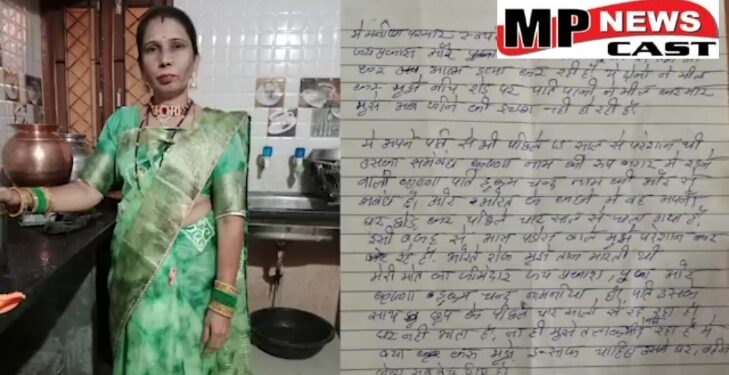 MP NEWS
CAST
मे मनीषा परमार
जयप्रकाश और पूजा
कर आत्म हत्या कर रही हूँ ये दोनों ने मील
कर मुझे बीच रोड पर पति पत्नी ने मील कर मार
मुझे अब जीने की इच्छा नही हो रही है
मे अपने पति से भी पिछले 15 साल से परेशान थी
उसका समबंध कृष्णा नाम की रूप नगर में रहने
वाली कृष्णा पति हुकम चन्द नाम की और से
संबंध है। और औरत के चक्कर में वह
घर छोड कर पिछले चार साल से चला गया है
इसी वजह से मारा पड़ोस वाले मुझे परेशान कर
कर रहे है. औरते रोज मुझे ताने मारती थी
मेरी मौत का जीमेदार जय प्रकाश, पूजा और
कृष्णा हुकम चन्द नामनीया है। पति उसके
साथ के पिछले चार सालो से रह रहा है।
घर नही आता है, ना ही मुझे तलाक दे रहा है मे
क्या करू मुझे इन्साफ चाहिए